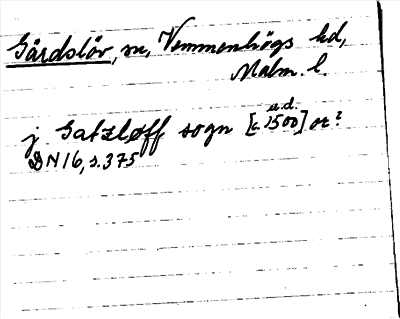 Gärdslöv, sn, Vemmenhögs hd,
Malm. l.
j Gatzløff sogn [c. 1500] or?
u.d.
DN 16, s. 375